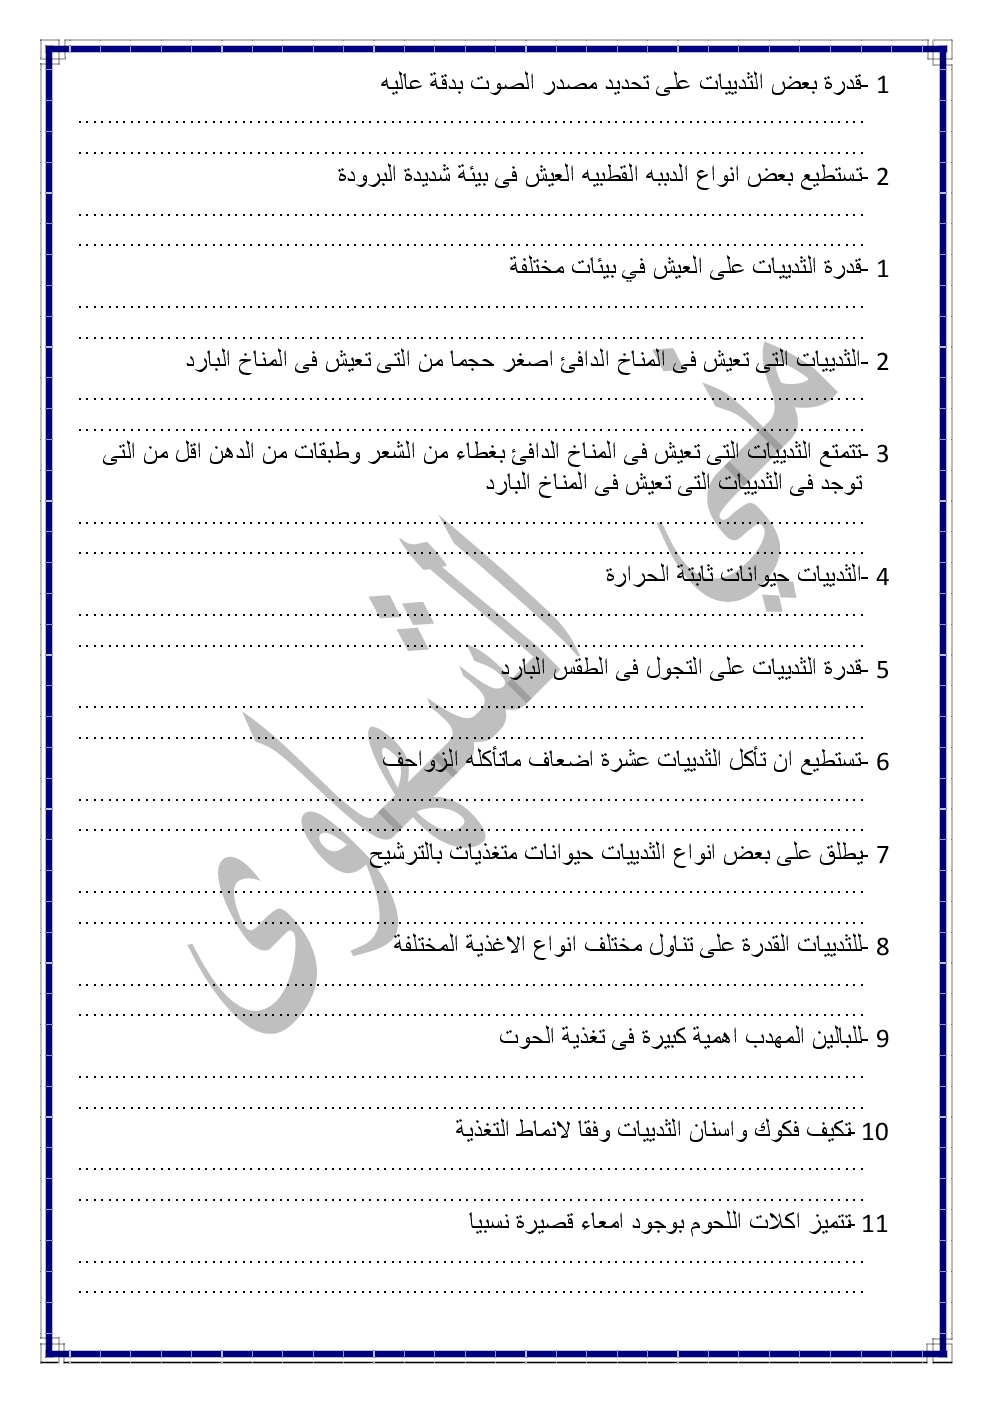 1 -قدرة بعض الثدييات على تحديد مصدر الصوت بدقة عاليه
................................................................
................................................................
2 -تستطيع بعض انواع الدببه القطبيه العيش فى بيئة شديدة البرودة
................................................................
................................................................
1 -قدرة الثدييات على العيش في بيئات مختلفة
................................................................
................................................................
2 -الثدييات التى تعيش فى المناخ الدافئ اصغر حجما من التى تعيش فى المناخ البارد
................................................................
................................................................
3 -تتمتع الثدييات التى تعيش فى المناخ الدافئ بغطاء من الشعر وطبقات من الدهن اقل من التى
توجد فى الثدييات التى تعيش فى المناخ البارد
................................................................
................................................................
4 -الثدييات حيوانات ثابتة الحرارة
................................................................
................................................................
5 -قدرة الثدييات على التجول فى الطقس البارد
................................................................
................................................................
6 -تستطيع ان تأكل الثدييات عشرة اضعاف ماتأكله الزواحف
................................................................
................................................................
7 -يطلق على بعض انواع الثدييات حيوانات متغذيات بالترشيح
................................................................
................................................................
8 -للثدييات القدرة على تناول مختلف انواع الاغذية المختلفة
................................................................
................................................................
9 -للبالين المهدب اهمية كبيرة فى تغذية الحوت
................................................................
................................................................
10 -تكيف فكوك واسنان الثدييات وفقا لانماط التغذية
................................................................
................................................................
11 -تتميز اكلات اللحوم بوجود امعاء قصيرة نسبيا
................................................................
................................................................
منى الشهاوى